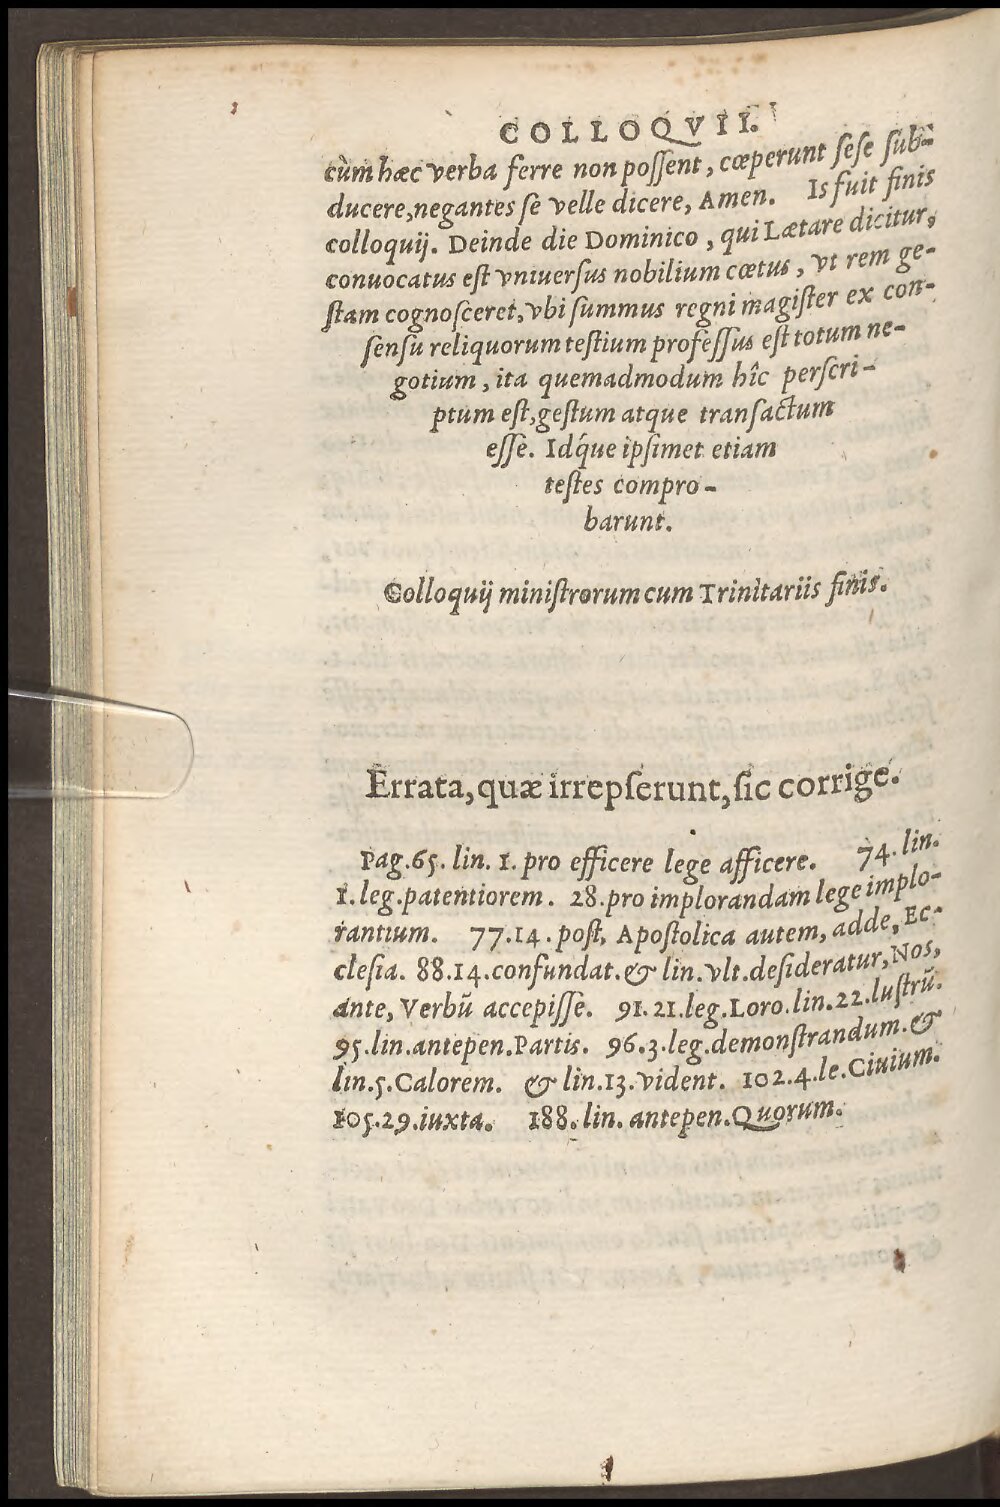 COLLOQVII.
cùm hæc verba ferre non possent, cœperunt sese sub-
ducere, negantes se velle dicere, Amen. Is fuit finis
colloquij. Deinde die Dominico, qui Lætare dicitur,
conuocatus est vniuersus nobilium cœtus, vt rem ge-
stam cognosceret, vbi summus regni magister ex con-
sensu reliquorum testium professus est totum ne-
gotium, ita quemadmodum hîc perscri-
ptum est, gestum atque transactum
esse. Idq́ue ipsimet etiam
testes compro-
barunt.
Colloquij ministrorum cum Trinitariis finis.
Errata, quæ irrepserunt, sic corrige.
Pag.65. lin. 1. pro efficere lege afficere. 74. lin.
1. leg. patentiorem. 28. pro implorandam lege implo-
rantium. 77.14. post, Apostolica autem, adde, Ec-
clesia. 88.14. confundat. & lin. vlt. desideratur, Nos,
ante, Verbũ accepisse. 91. 21. leg. Loro. lin. 22. lustrũ.
95. lin. antepen. Partis. 96.3. leg. demonstrandum. &
lin.5. Calorem. & lin.13. vident. 102.4. le. Ciuium.
105.29. iuxta. 188. lin. antepen. Quorum.